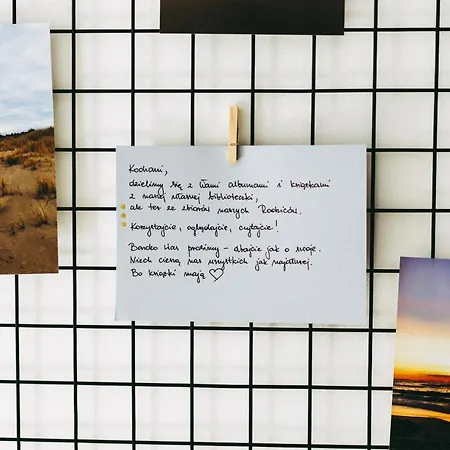 Kochani,
dzielimy się z Wami albumami i książkami
z naszej własnej biblioteczki,
ale też ze zbiorów naszych Rodziców.
Korzystajcie, oglądajcie, czytajcie!
Bardzo Was prosimy - dbajcie jak o swoje.
Niech cieszą nas wszystkich jak najdłużej.
Bo książki mają ♡